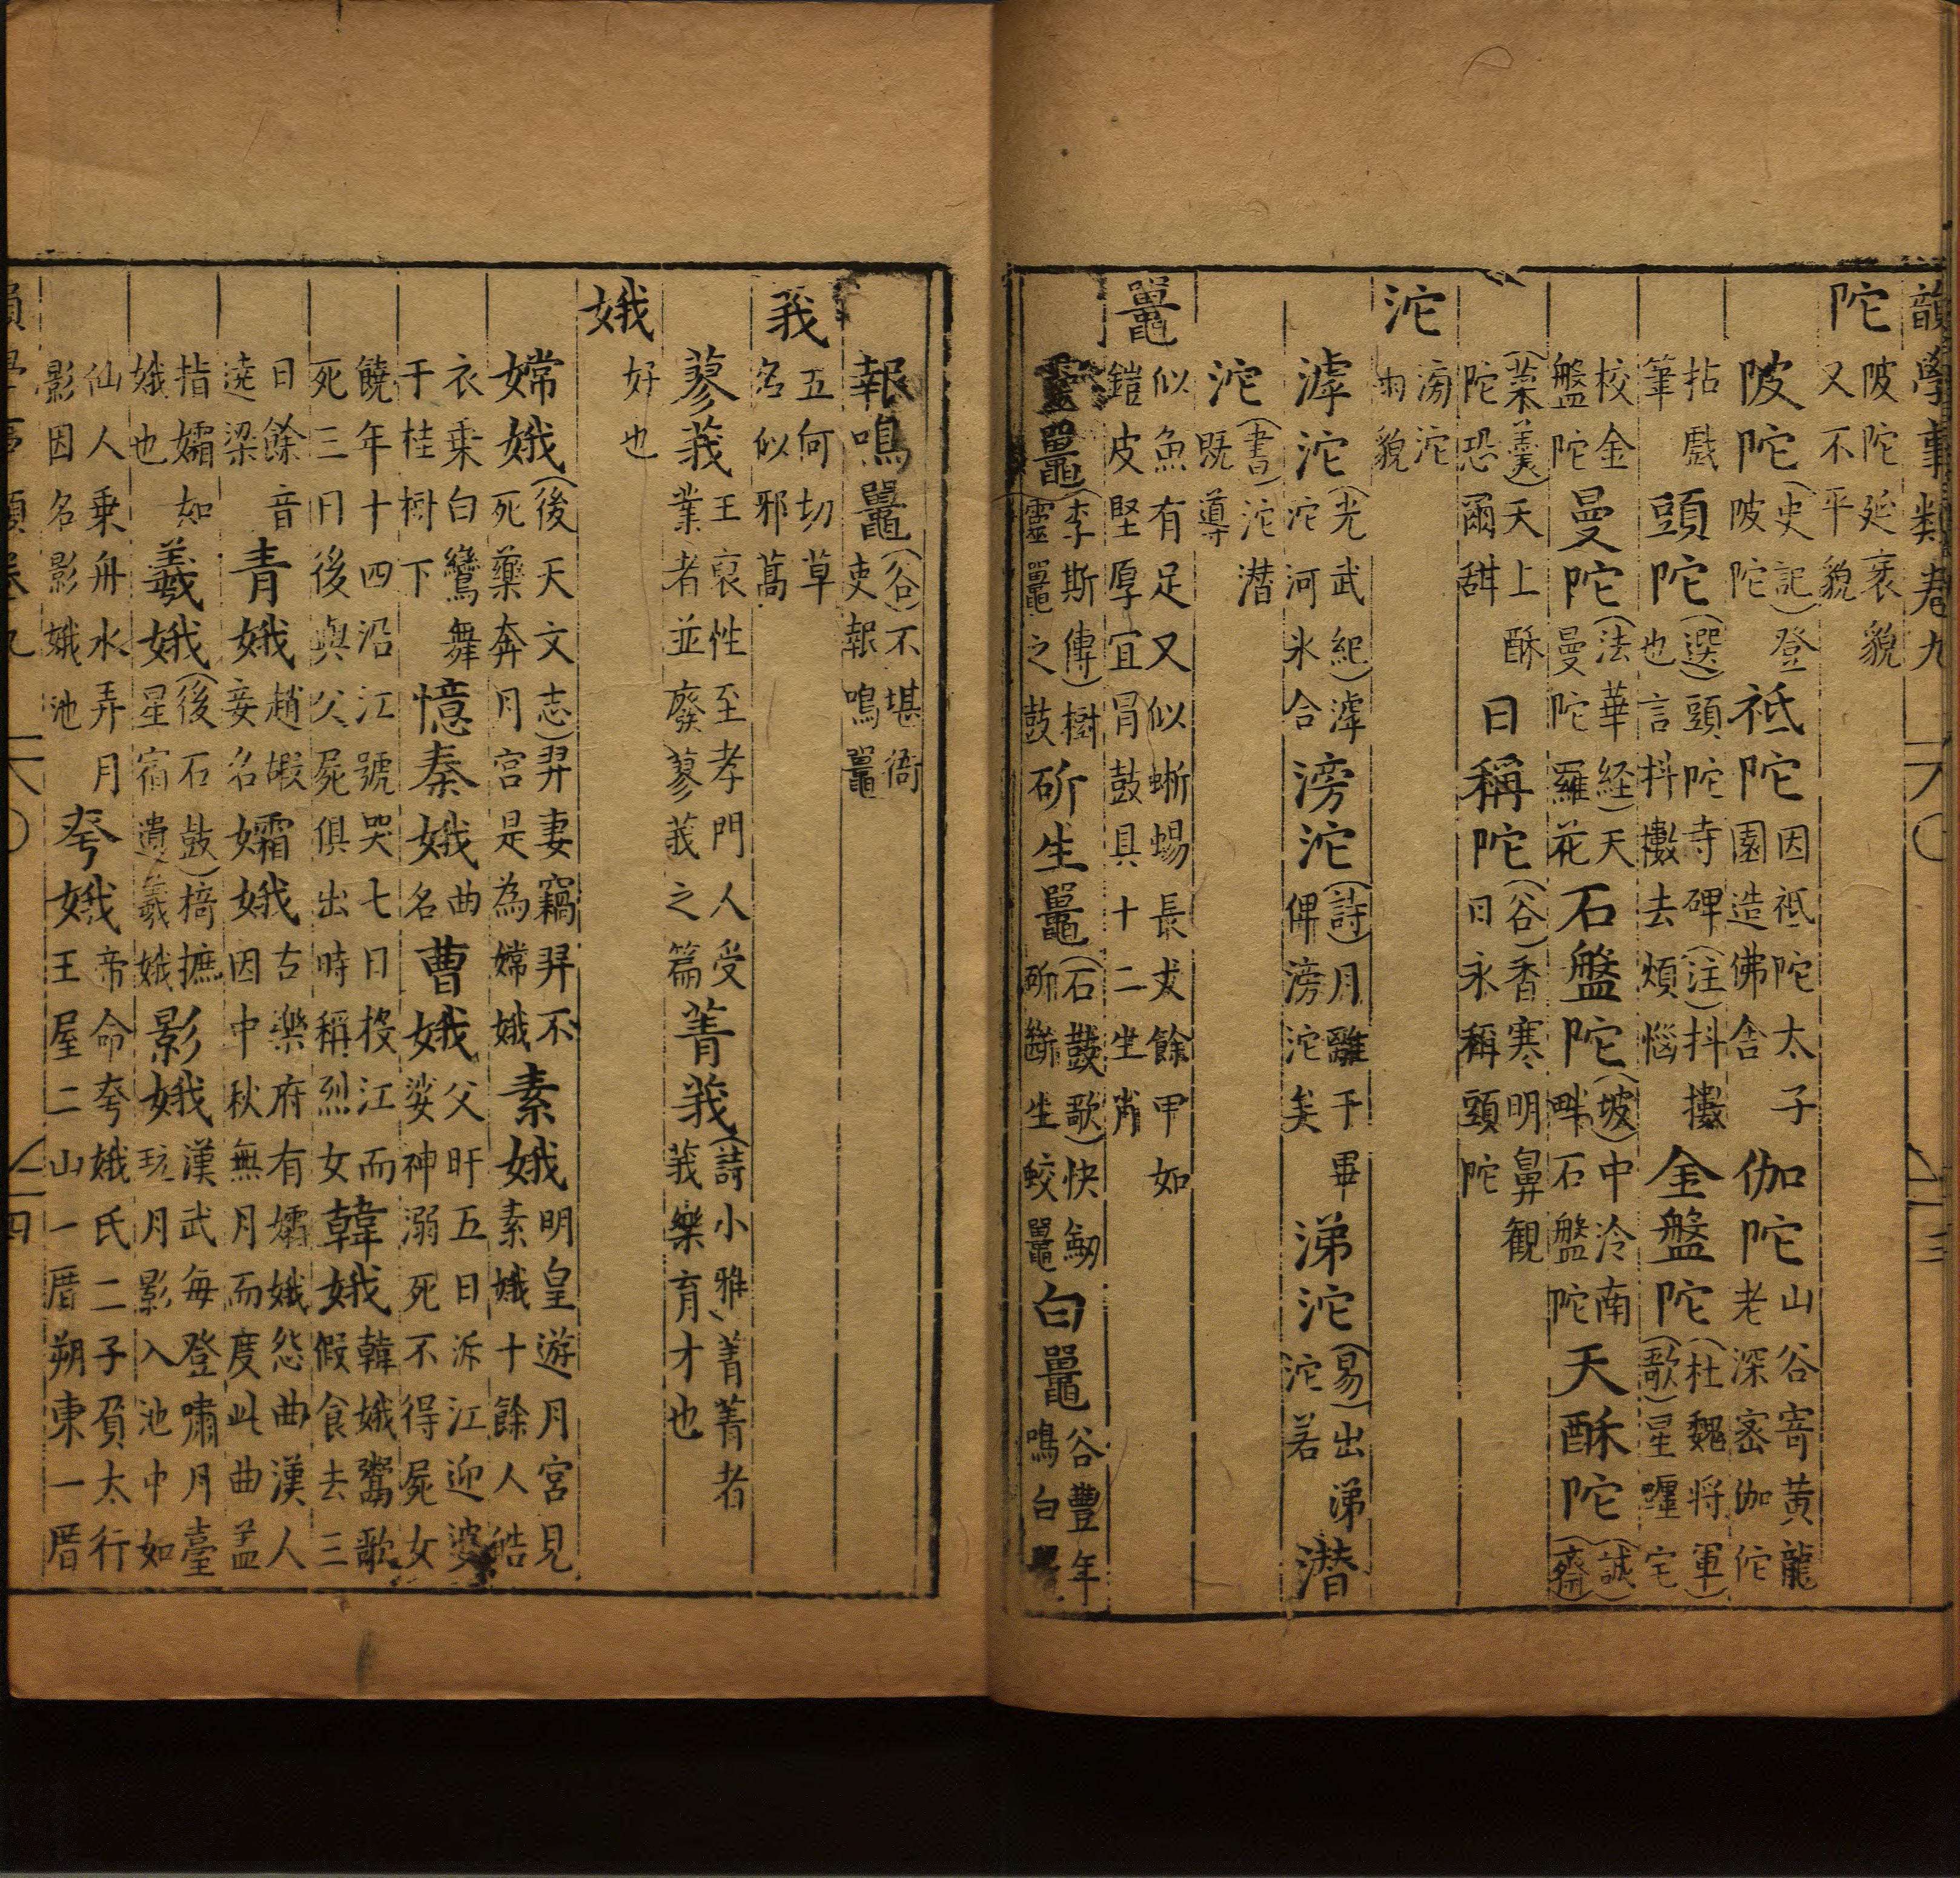 韻學事類卷九 六〇 三
陀 陂陀延袤貌又不平貌
陂陀(史記)登陂陀 祗陀因祗陀太子園造佛舍 伽陀山谷寄黃龍老深密伽佗
拈戲筆 頭陀(選)頭陀寺碑(注)抖擻也言抖擻去煩惱 金盤陀(杜魏将軍歌)星躔宝
校金盤陀 曼陀(法華経)天曼陀羅花 石盤陀(坡)中泠南畔石盤陀 天酥陀(誠齋
菜羹)天上酥陀恐爾甜 日稱陀(谷)香寒明鼻観日永稱頭陀
沱 滂沱雨貌
滹沱(光武紀)滹沱河氷合 滂沱(詩)月離于畢俾滂沱矣 涕沱(易)出涕沱若 潜
沱(書)沱潜既導
鼉 似魚有足又似蜥蜴長丈餘甲如鎧皮堅厚宜冐鼓具十二生肖
靈鼉(李斯傳)樹靈鼉之鼓 斫生鼉(石鼓歌)快劒斫斷生蛟鼉 白鼉谷豐年鳴白鼉
報鳴鼉(谷)不堪衙吏報鳴鼉
莪 五何切草名似邪蒿
蓼莪王裒性至孝門人受業者並廢蓼莪之篇 菁莪(詩小雅)菁菁者莪樂育才也
娥 好也
嫦娥(後天文志)羿妻竊羿不死藥奔月宮是為嫦娥 素娥明皇遊月宮見素娥十餘人皓
衣乗白鸞舞于桂樹下 憶秦娥曲名 曹娥父旴五日泝江迎婆娑神溺死不得屍女
饒年十四沿江號哭七日投江而死三日後與父屍俱出時稱烈女 韓娥韓娥鬻歌假食去三
日餘音遶梁 青娥趙嘏妾名 孀娥古樂府有孀娥怨曲漢人因中秋無月而度此曲盖
指孀如娥也 羲娥(後石鼓)掎摭星宿遺羲娥 影娥漢武每登嘯月臺玩月影入池中如
仙人乗舟水弄月影因名影娥池 夸娥帝命夸娥氏二子負太行王屋二山一厝朔東一厝
韻學事類卷九 六〇 四